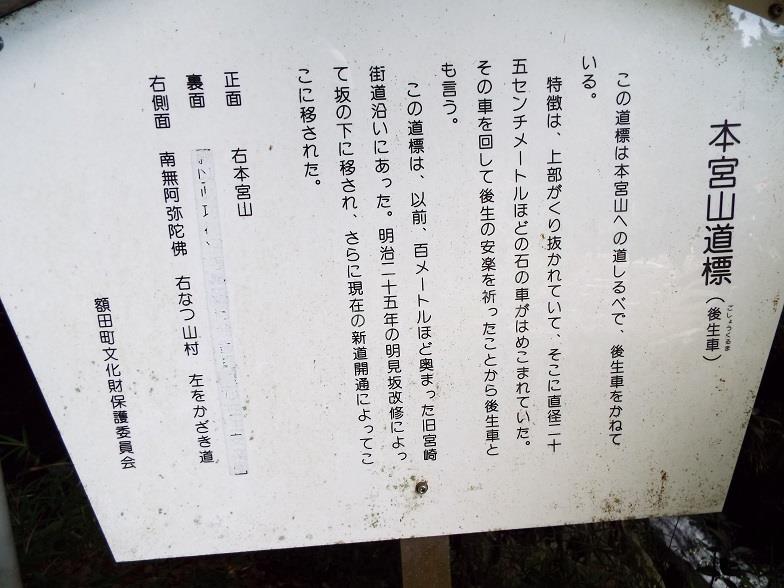 本宮山道標（後生車）
ごしょうくるま
この道標は本宮山への道しるべで、後生車をかねて
いる。
特徴は、上部がくり抜かれていて、そこに直径二十
五センチメートルほどの石の車がはめこまれていた。
その車を回して後生の安楽を祈ったことから後生車と
も言う。
この道標は、以前、百メートルほど奥まった旧宮崎
街道沿いにあった。明治二十五年の明見坂改修によっ
て坂の下に移され、さらに現在の新道開通によってこ
こに移された。
正面　右本宮山
裏面
右側面　南無阿弥陀佛　右なつ山村　左をかざき道
額田町文化財保護委員会